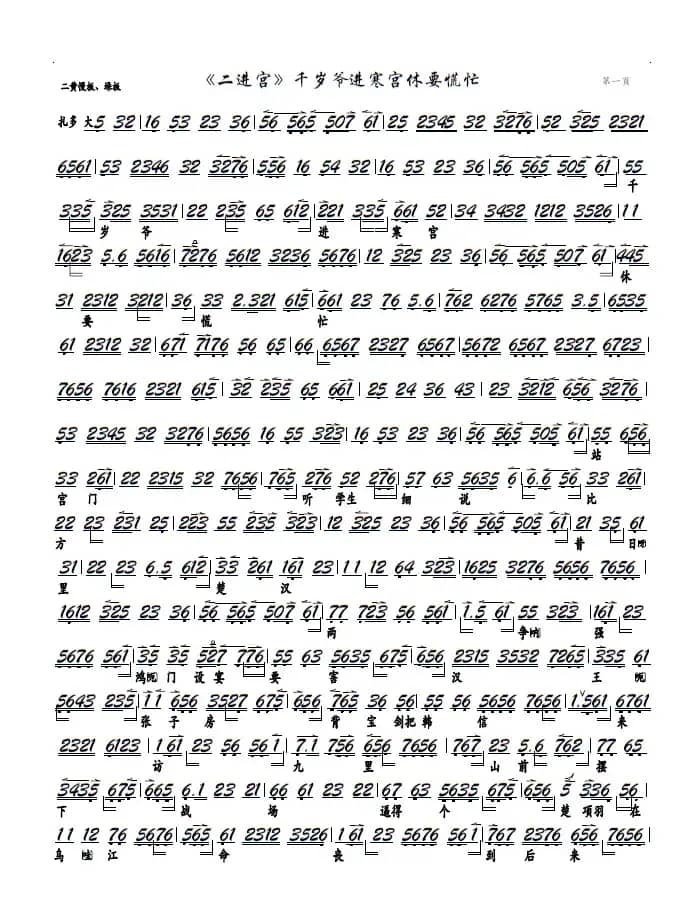 《二进宫》千岁爷进寒宫休要慌忙
二黄慢板、垛板
第一页
扎多 大5 32|16 53 23 36|56 565 507 61|25 2345 32 3276|52 325 2321
6561|53 2346 32 3276|556 16 54 32|16 53 23 36|56 565 505 61|55
千
335 325 3531|22 235 65 612|221 335 661 52|34 3432 1212 3526|11
岁 爷 进 寒 宫
1623 5.6 5616|7276 5612 3236 5676|12 325 23 36|56 565 507 61|445
休
31 2312 3212|36 33 2.321 615|661 23 76 5.6|762 6276 5765 3.5|6535
要 慌 忙
61 2312 32|671 7176 56 65|66 6567 2327 6567|5672 6567 2327 6723|
7656 7616 2321 615|32 235 65 661|25 24 36 43|23 3212 656 3276|
53 2345 32 3276|5656 16 55 323|16 53 23 36|56 565 505 61|55 656
站
33 261|22 2315 32 7656|765 276 52 276|57 63 5635 6|6.6 56 33 261
宫 门 听 学生 细 说 比
22 23 231 25|223 55 235 323|12 325 23 36|56 565 507 61|21 35 61
方 昔 日
31|22 23 6.5 612|33 261 161 23|11 12 64 323|1625 3276 5656 7656|
里 楚 汉
1612 325 23 36|56 565 507 61|77 723 56 561|1.5 61 55 323|161 23
两 争 强
5676 561|35 35 527 776|55 63 5635 675|656 2315 3532 7265|335 61
鸿 门 设 宴 要 害 汉 王
5643 235|11 656 3527 675|675 335 323 656|55 56 5656 7656|1.561 6761
张 子 房 背 宝 剑把 韩 信 来
2321 6123|161 23 56 561|7.1 756 656 7656|767 23 5.6 762|77 65
访 九 里 山 前 摆
3435 675|665 6.1 23 21|66 23 22 67|63 5635 675 656|552 336 56
下 战 场 逼得 个 楚 项羽 在
11 12 76 5676|565 61 2312 3526|161 23 5676 561|767 2376 656 7656|
乌 江 命 丧 到 后 来